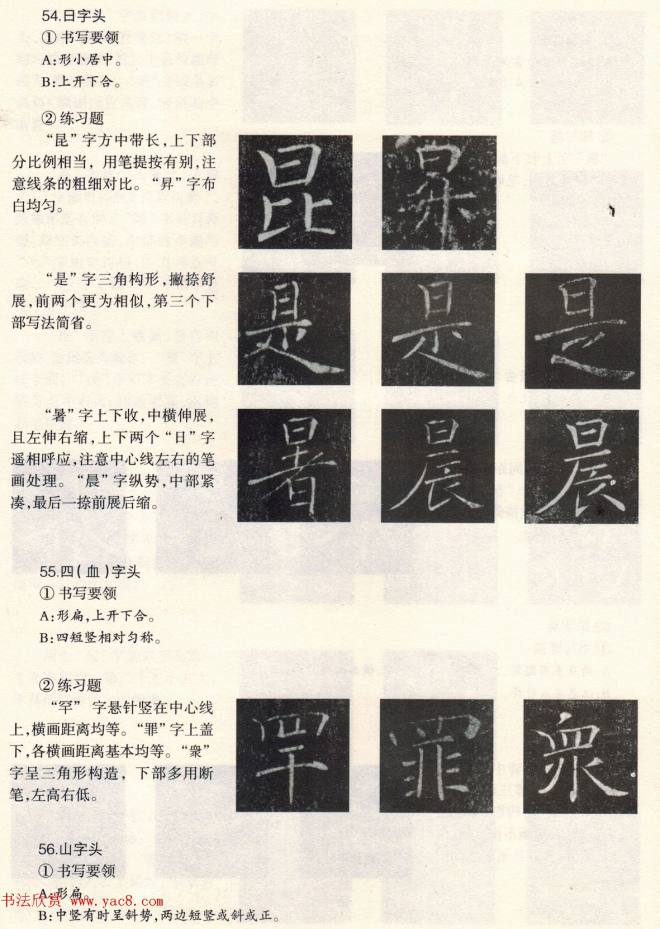 54.日字头
①书写要领
A:形小居中。
B:上开下合。
②练习题
“昆”字方中带长,上下部
分比例相当,用笔提按有别,注
意线条的粗细对比。“昇”字布
白均匀。
昆 昇
“是”字三角构形,撇捺舒
展,前两个更为相似,第三个下
部写法简省。
是 是 是
“暑”字上下收,中横伸展,
且左伸右缩,上下两个“日”字
遥相呼应,注意中心线左右的笔
画处理。“晨”字纵势,中部紧
凑,最后一捺前展后缩。
暑 晨 晨
55.四(血)字头
①书写要领
A:形扁,上开下合。
B:四短竖相对匀称。
②练习题
“罕”字悬针竖在中心线
上,横画距离均等。“罪”字上盖
下,各横画距离基本均等。“衆”
字呈三角形构造,下部多用断
笔,左高右低。
罕 罪 衆
56.山字头
①书写要领
A:形扁
B:中竖有时呈斜势,两边短竖或斜或正。
书法欣赏 www.yac8.com